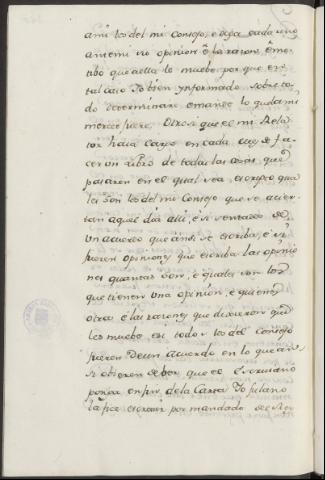 ami los del mi Consejo, e diga cada uno
ante mi su opinion e la razon e mo-
tibo que a ello le muebe, por que en
tal caso Yo bien ynformado sobre to-
do determinare e mande lo que a mi
merced fuere. Otrosi que el mi Rela
tor haia cargo en cada mes de fa-
cer un libro de todas las cosas que
pasaren en el qual sea escripto qua
les son los del mi Consejo que se acier-
tan aquel dia alli, e si son todos de
un acuerdo que ansi se escriba, e si
fueren opiniones que escriba las opinio
nes quantas son, e quales son los
que tienen una opinion, e quienes
otra e las razones que dixeron que
les muebe e si todos los del consejo
fueren de un acuerdo en lo que an-
si obieren de ver que el Escribano
ponga en fin de la Carta Yo fulano
la fice escribir por mandado del Rey